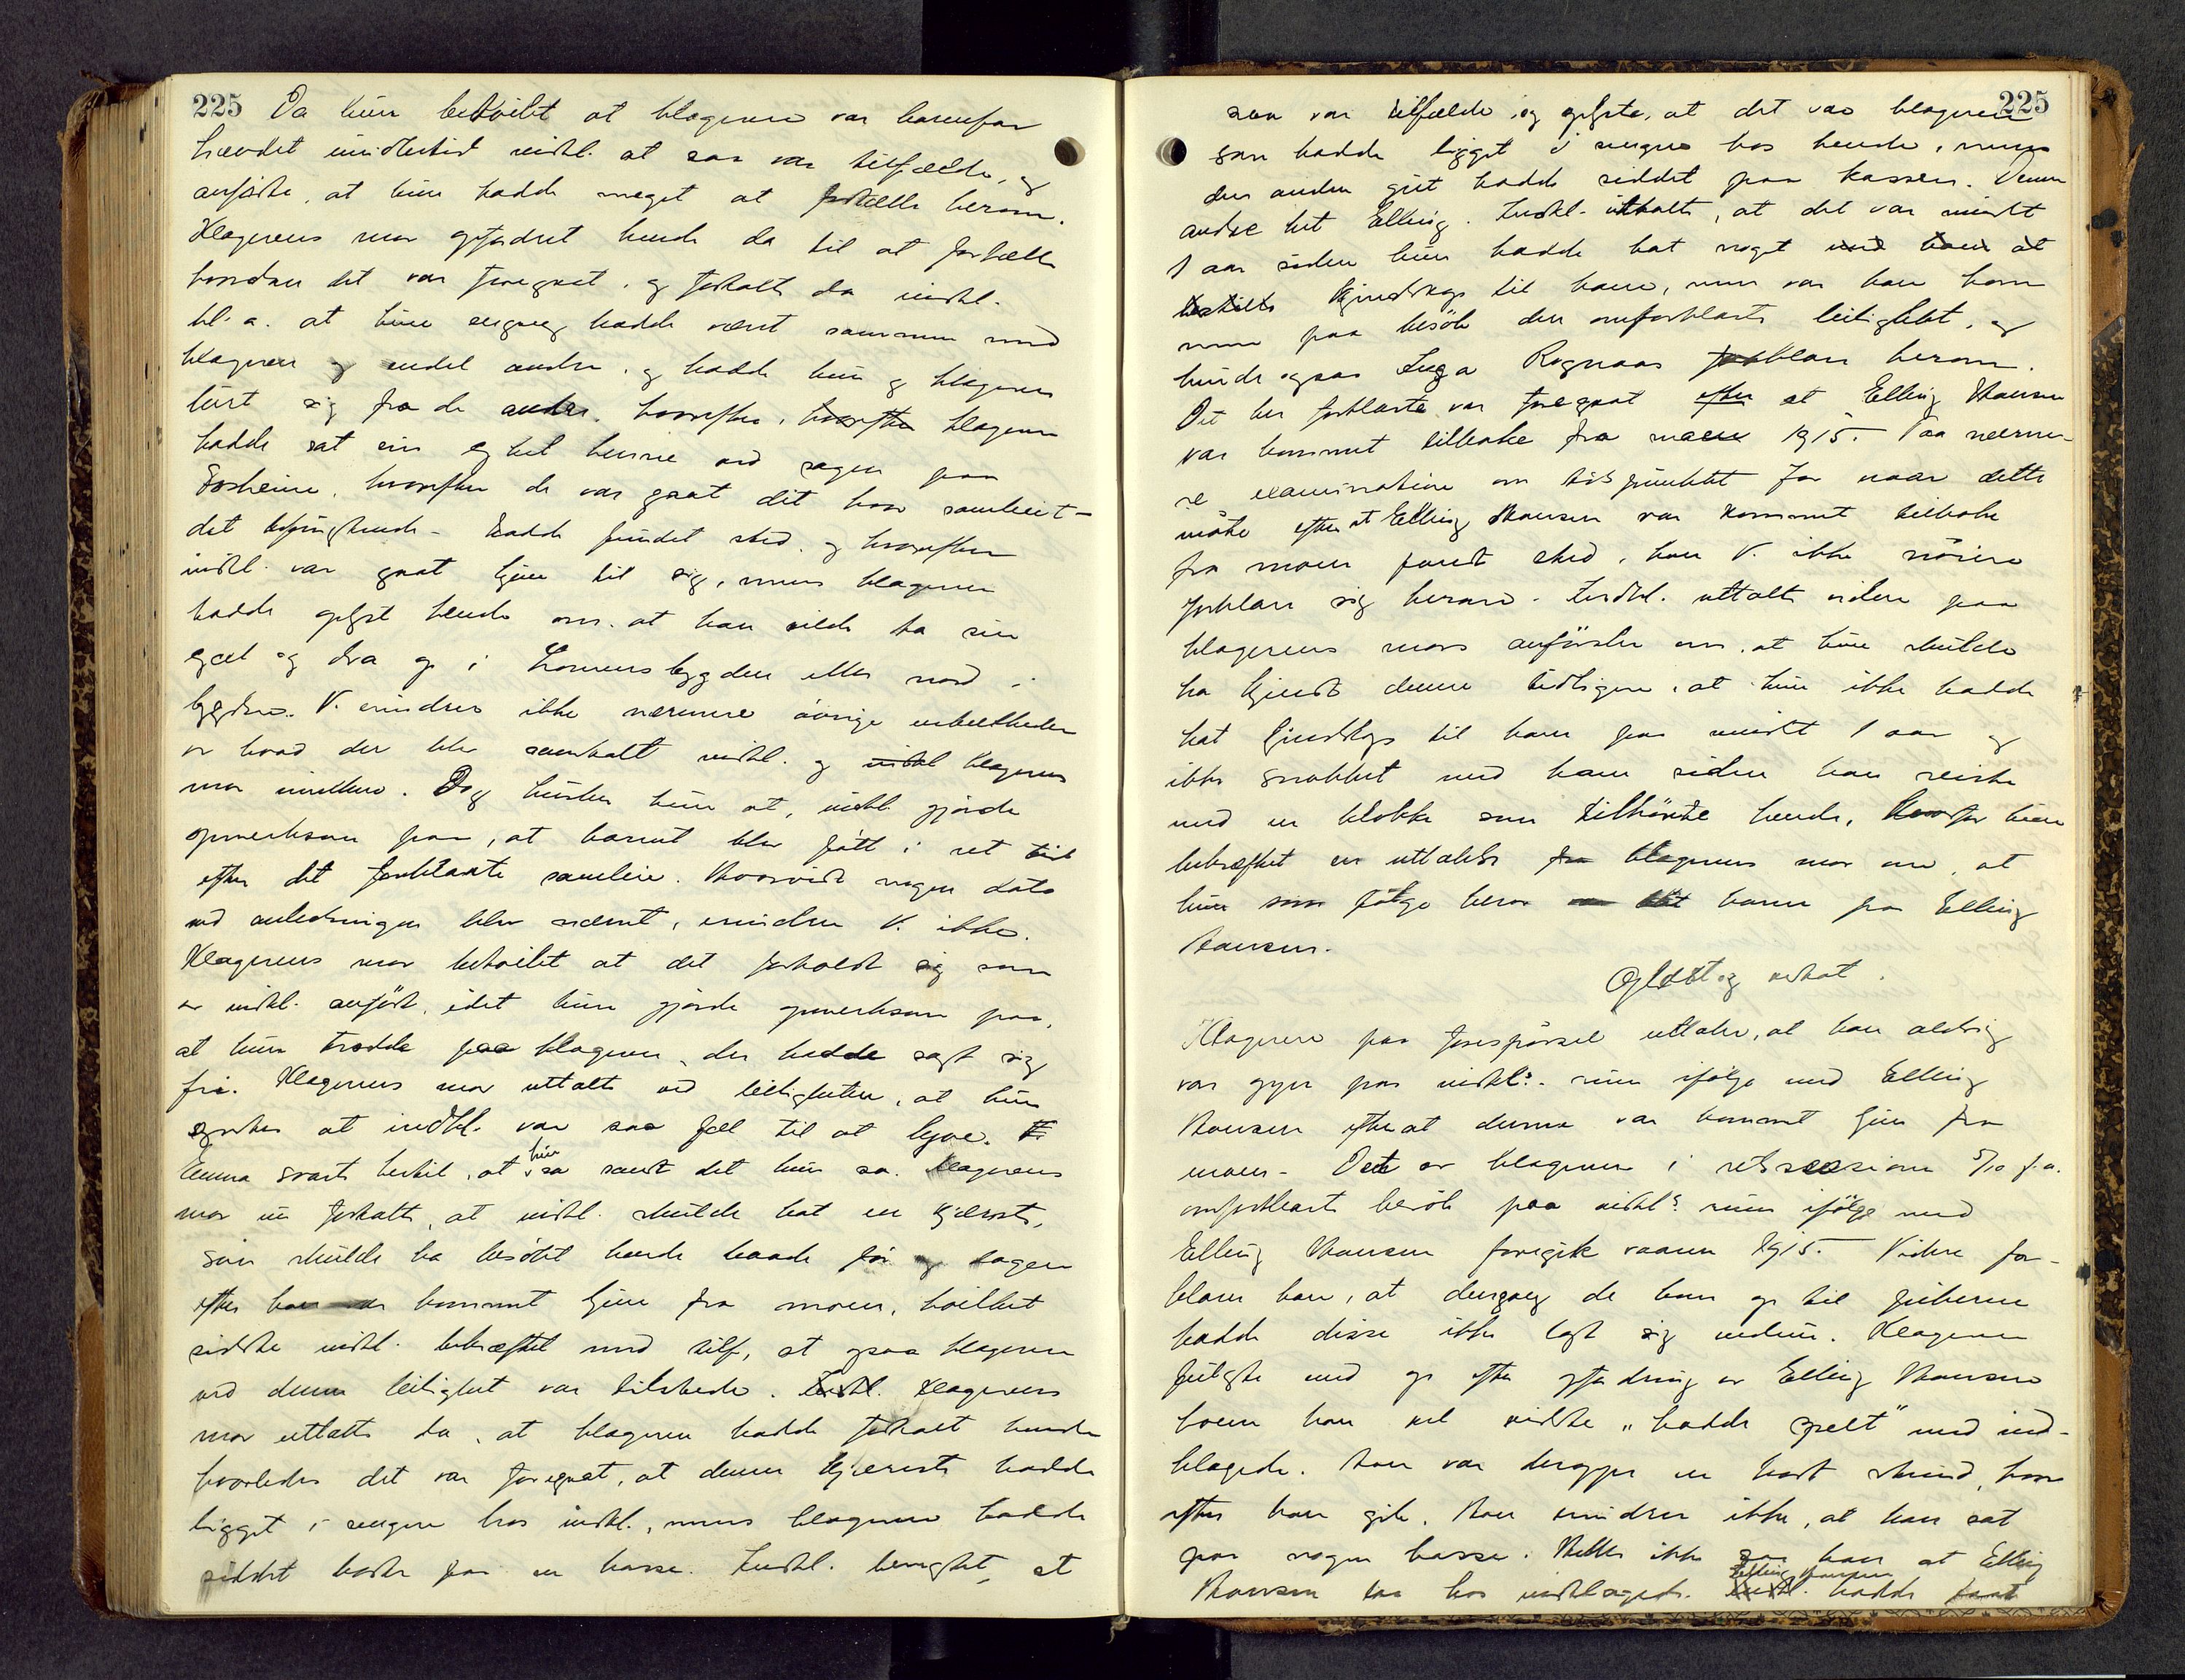 225 Da hun betvilet at klageren var barnefar
hævdet imidlertid indkl. at saa var tilfælde, og
anførte, at hun hadde meget at fortælle herom.
Klagerens mor opfordret hende da til at fortælle
hvordan det var foregaat, og fortalte da indkl.
bl. a. at hun engang hadde vært sammen med
klageren og endel andre, og hadde hun og klageren
lurt sig fra de andre, hvorefter, hvorefter klageren
hadde sat sin sykkel henne ved sagen paa
Fosheim, hvorefter de var gaat dit hvor samleiet -
det besvangrende - hadde fundet sted, og hvorefter
indkl. var gaat hjem til sig, mens klageren
hadde oplyst hende om, at han vilde ta sin
sykkel og dra op i Lomensbygden eller nord i
bygden. V. erindrer ikke nærmere øvrige enkeltheder
av hvad der blev samtalt indkl. og indkl klagerens
mor imellem. Dog husker hun at, indkl. gjorde
opmerksom paa, at barnet blev født i ret tid
efter det forklarte samleie. Hvorvidt nogen dato
ved anledningen blev nævnt, erindrer V. ikke.
Klagerens mor betvilet at det forholdt sig som
av indkl. anført, idet hun gjorde opmerksom paa,
at hun trodde paa klageren, der hadde sagt sig
fri. Klagerens mor uttalte ved leiligheten, at hun
syntes at indkl. var saa fæl til at lyve. E
Emma svarte hertil, at hun sa sandt det hun sa. Klagerens
mor nu fortalte, at indkl. skulde hat en kjæreste,
som skulde ha besøkt hende baade før og dagen
efter han var kommet hjem fra moen, hvilket
sidste indkl. bekræftet med tilf., at ogsaa klageren
ved denne leilighet var tilstede. Indkl. Klagerens
mor uttalte da, at klageren hadde fortalt hende
hvorledes det var foregaat, at denne kjæreste hadde
ligget i sengen hos indkl., mens klageren hadde
siddet borte paa en kasse. Indkl. benegtet, at
225
saa var tilfælde, og oplyste, at det var klageren
som hadde ligget i sengen hos hende, mens
den anden gut hadde siddet paa kassen. Denne
andre het Elling. Indkl. uttalte, at det var mindst
1 aar siden hun hadde hat noget med ham at
bestille kjendskap til ham, men var han kom
men paa besøk den omforklarte leilighet, og
kunde ogsaa Inga Rognaas forklare herom.
Det her forklarte var foregaat efter at Elling Hansen
var kommet tilbake fra moen 1915. Paa nærme-
re examination om tidspunktet for naar dette
møte efter at Elling Hansen var kommet tilbake
fra moen fandt sted, kan V. ikke nøiere
forklare sig herom. Indkl. uttalte videre paa
klagerens mors anførsler om, at hun skulde
ha kjendt denne tidligere, at hun ikke hadde
hat kjendskap til ham paa mindst 1 aar og
ikke snakket med ham siden han reiste
med en klokke som tilhørte hende, hvorfor hun
bekræftet en uttalelse fra klagerens mor om, at
hun som følge herav var blit harm paa Elling
Hansen.
Oplæst og vedtat.
Klageren paa forespørsel uttaler, at han aldrig
var oppe paa indkl.s rum ifølge med Elling
Hansen efterat denne var kommet hjem fra
moen. Dette av klageren i retssession 5/10 f. a.
omforklarte besøk paa indkl.s rum ifølge med
Elling Hansen foregik vaaren 1915. Videre for-
klarer han, at dengang de kom op til pikerne
hadde disse ikke lagt sig endnu. Klageren
fulgte med op efter opfordring av Elling Hansen
hvem han vel vidste "hadde spelt" med ind-
klagede. Han var deroppe en kort stund, hvor
efter han gik. Han erindrer ikke, at han sat
paa nogen kasse. Heller ikke saa han at Elling
Hansen laa hos indklagede. Indkl. Elling Hansen hadde